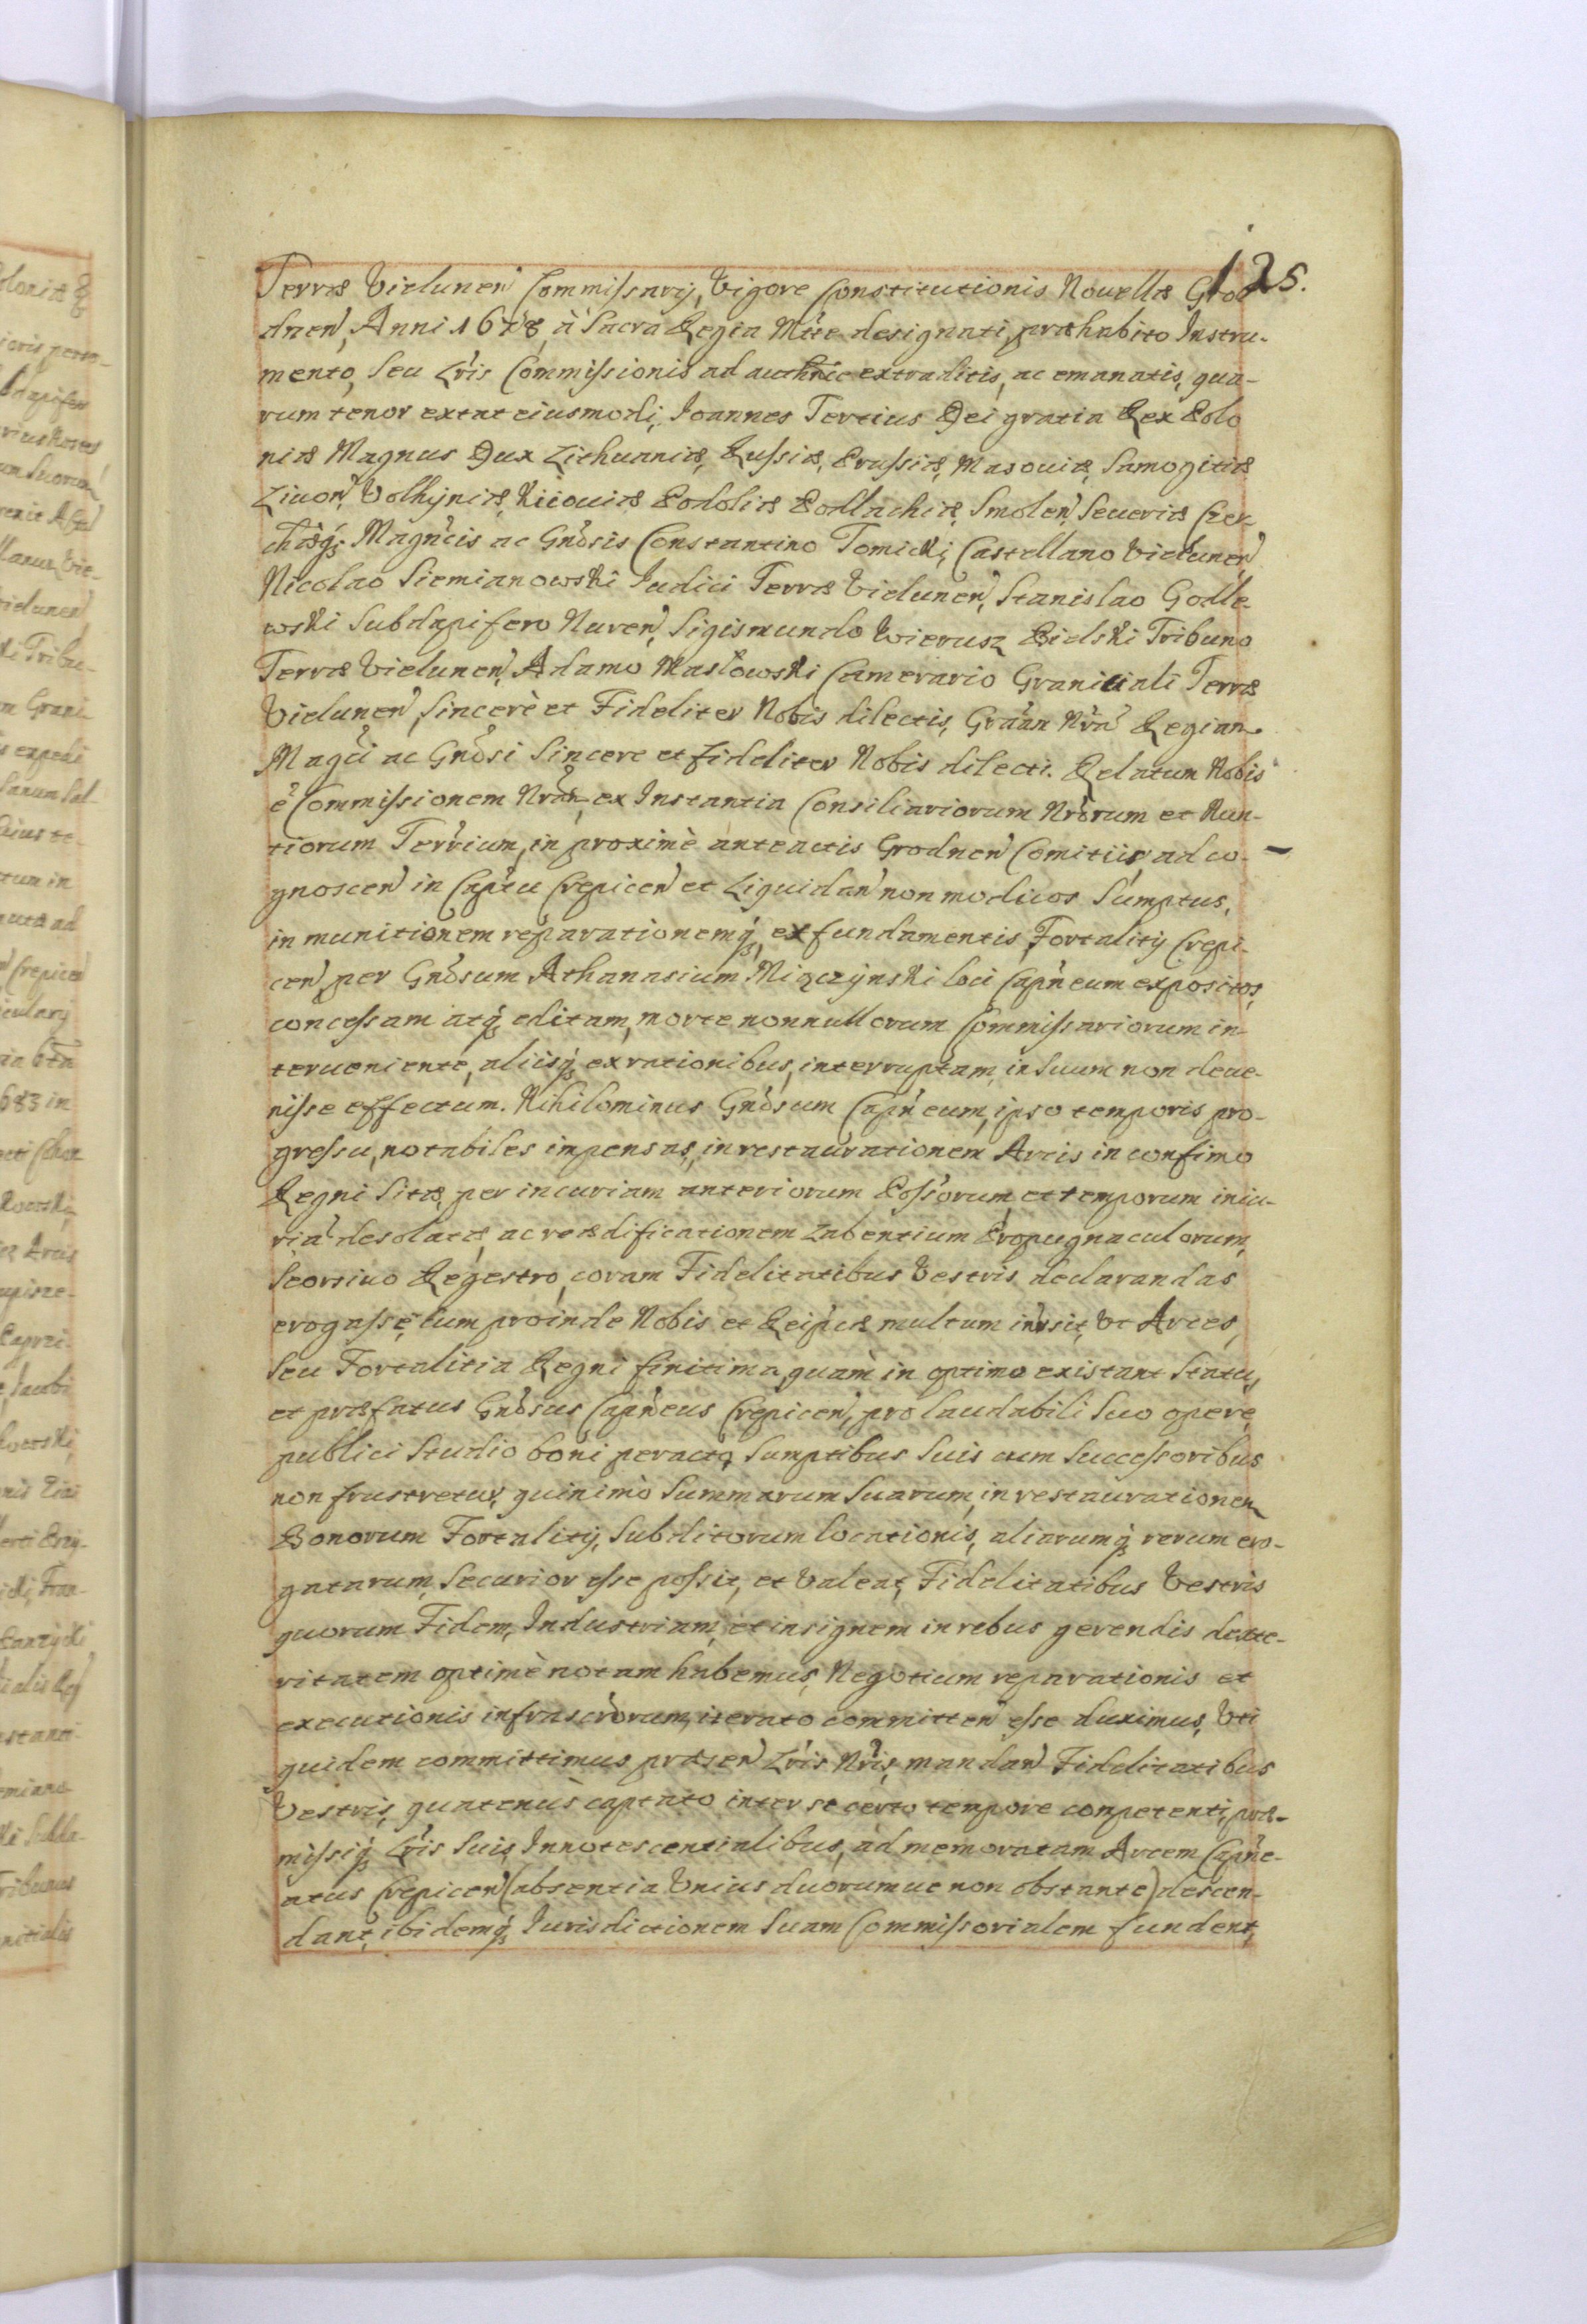 125.
Terræ Vielunen̄ Commissarij, Vigore Constitutionis Nouellæ Grod
dnen̄, Anni 1678, à Sacra Regia Mtte designati, præhabito Instru-
mento, seu Lr̄is Commissionis ad authen̄ce extraditis, ac emanatis, qua-
rum tenor extat eiusmodi, Ioannes Tertius Dei gratia Rex Polo
niæ Magnus Dux Lithuaniæ, Russiæ, Prussiæ, Masouiæ, Samogitiæ
Liuon̄, Volhyniæ, Kiiouiæ Podoliæ Podlachiæ, Smolen̄, Seueriæ Czer-
chœq; Magn̄cis ac Gn̄osis Constantino Tomicki, Castellano Vielunen̄,
Nicolao Siemianowski Iudici Terræ Vielunen̄, Stanislao Godle-
wski Subdapifero Nuren̄, Sigismundo Wierusz Bielski Tribuno
Terræ Vielunen̄, Adamo Masłowski Camerario Granitiali Terræ
Vielunen̄, sincerè et Fideliter Nobis dilectis, Gra̅an Nr̄a Regian.
Magci ac Gn̄osi sincere et fideliter Nobis dilecti. Relatum Nobis
è Commissionem Nran̄, ex Instantia Consiliariorum Nrōrum et Nun-
tiorum Terr̄ium, in proximè anteactis Grodnen̄ Comitiis ad co-
gnoscen̄ in Cap̄tu Crepicen̄ et Liquidan̄ non modicos Sumptus,
in munitionem reparationemq; ex fundamentis, Fortalitij Crepi-
cen̄, per Gn̄osum Athanasium Miączynski loci Capn̄eum expositos,
concessam atq; editam, morte nonnullorum Commissariorum in-
terueniente, aliisq; ex rationibus, interruptam, in suum non deue-
nisse effectum. Nihilominus Gn̄osum Capn̄eum, ipso temporis pro-
gressu, notabiles impensas, in restaurationem Arcis in confinio
Regni sitæ, per incuriam anteriorum Possorum, et temporum iniu-
ria desolatæ, ac reædificationem Labentium Propugnaculorum,
Seorsiuo Regestro, coram Fidelitatibus Vestris declarandas
erogasse, cum proinde Nobis et Reip̄cæ multum intsit, Vt Arces,
Seu Fortalitia Regni finitima, quam in optimo existant Statu,
et præfatus Gn̄osus Capn̄eus Crepicen̄, pro laudabili suo opere
publici Studio boni peracto, Sumptibus Suis cum Successoribus
non frustretur, quinimò Summarum Suarum, in restaurationem
Bonorum Fortalitij, Subditorum locationis, aliarumq; rerum ero-
gatarum, Securior esse possit, et Valeat, Fidelitatibus Vestris
quorum Fidem, Industriam, et insignem in rebus gerendis dexte-
ritatem optimè notam habemus, Negotium reparationis et
executionis infrascrōrum, iterato committen̄ esse duximus, Vti
quidem committimus præsen̄ Lr̄is Nr̄is, mandan̄ Fidelitatibus
Vestris, quatenùs captato inter se certo tempore competenti, præ-
missisq; Lr̄is Suis Innotescentialibus, ad memoratam Arcem Capn̄e-
atus Crepicen̄ (absentia Vnius duorumue non obstante) descen-
dant, ibidemq; Iurisdictionem Suam Commissorialem fundent,